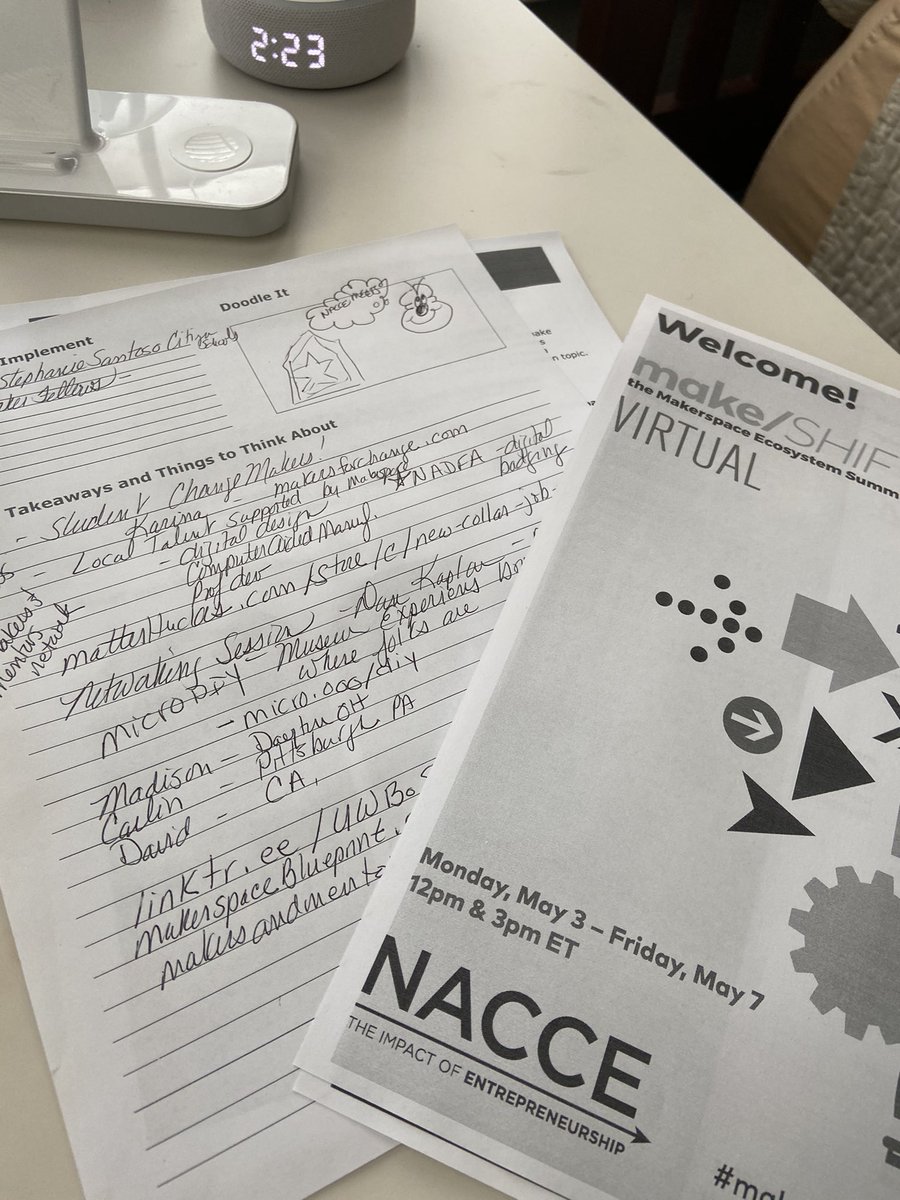 2:23
Implement
Stephanie Santoso Citizen
Schools
Fellows -
Doodle It
NACCE MEETS
Takeaways and Things to Think About
- Student ChangeMakers!
Karina - makersforchange.com
- Local Talent supported by
- digital design
Computer Aided Manuf.
Prof dev
NADFA - digital
badging
.com/store/c/new-collar-job-
mentors
network
Networking Session - Dan
Micro DIY - Museum
where folks are
- micro.ooo/diy
Madison - Dayton OH
Caitlin - Pittsburgh PA
David - CA,
linktr.ee/UWBo
makerspaceBlueprint.
makersandmento
ake
s
n topic.
Welcome!
make/SHIF
the Makerspace Ecosystem Summ
VIRTUAL
Monday, May 3 – Friday, May 7
12pm & 3pm ET
NACCE
THE IMPACT OF ENTREPRENEURSHIP
#mak